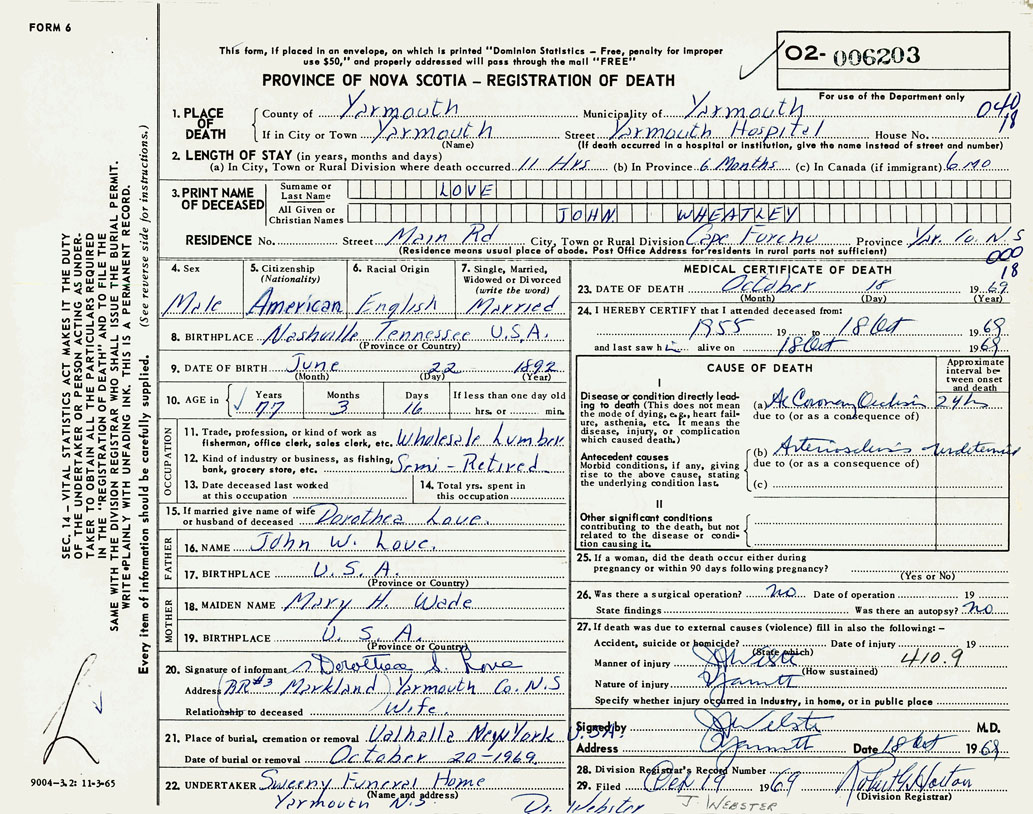 FORM 6
This form, if placed in an envelope, on which is printed "Dominion Statistics – Free, penalty for improper
use $50," and properly addressed will pass through the mail "FREE"
PROVINCE OF NOVA SCOTIA – REGISTRATION OF DEATH
O2- 006203
For use of the Department only
040
18
1. PLACE OF DEATH { County of Yarmouth Municipality of Yarmouth
If in City or Town Yarmouth Street Yarmouth Hospital House No.
(Name) (If death occurred in a hospital or institution, give the name instead of street and number)
2. LENGTH OF STAY (in years, months and days)
(a) In City, Town or Rural Division where death occurred 11 Hrs (b) In Province 6 Months (c) In Canada (if immigrant) 6 mo
3. PRINT NAME OF DECEASED { Surname or Last Name LOVE
All Given or Christian Names JOHN WHEATLEY
RESIDENCE No. Street Main Rd City, Town or Rural Division Cape Forchu Province Yar. Co. N.S
(Residence means usual place of abode. Post Office Address for residents in rural parts not sufficient)
000
18
4. Sex 5. Citizenship (Nationality) 6. Racial Origin 7. Single, Married, Widowed or Divorced (write the word)
Male American English Married
8. BIRTHPLACE Nashville Tennessee U.S.A.
(Province or Country)
9. DATE OF BIRTH June 22 1892
(Month) (Day) (Year)
10. AGE in { Years Months Days If less than one day old
77 3 16 hrs. or min.
OCCUPATION
11. Trade, profession, or kind of work as
fisherman, office clerk, sales clerk, etc. Wholesale Lumber
12. Kind of industry or business, as fishing,
bank, grocery store, etc. Semi-Retired
13. Date deceased last worked
at this occupation
14. Total yrs. spent in
this occupation
15. If married give name of wife
or husband of deceased Dorothea Love.
FATHER
16. NAME John W. Love.
17. BIRTHPLACE U.S.A.
(Province or Country)
MOTHER
18. MAIDEN NAME Mary H. Wade
19. BIRTHPLACE U.S.A.
(Province or Country)
20. Signature of informant Dorothea S. Love
Address RR#3 Markland Yarmouth Co. N.S
Relationship to deceased Wife.
21. Place of burial, cremation or removal Valhalla New York U.SA
Date of burial or removal October 20-1969.
22. UNDERTAKER Sweeny Funeral Home
(Name and address)
Yarmouth N.S
MEDICAL CERTIFICATE OF DEATH
23. DATE OF DEATH October 18 1969
(Month) (Day) (Year)
24. I HEREBY CERTIFY that I attended deceased from:
1955 19 to 18 Oct 1969
and last saw him alive on 18 Oct 1969
CAUSE OF DEATH
Approximate interval between onset and death
I
Disease or condition directly leading to death (This does not mean the mode of dying, e.g., heart failure, asthenia, etc. It means the disease, injury, or complication which caused death.)
(a) Ac Coronary Occlusion 24 hrs
due to (or as a consequence of)
Antecedent causes
Morbid conditions, if any, giving rise to the above cause, stating the underlying condition last.
(b) Arteriosclerosis undetermined
due to (or as a consequence of)
(c)
II
Other significant conditions
contributing to the death, but not
related to the disease or condition causing it.
25. If a woman, did the death occur either during
pregnancy or within 90 days following pregnancy?
(Yes or No)
26. Was there a surgical operation? no Date of operation 19
State findings Was there an autopsy? no
27. If death was due to external causes (violence) fill in also the following: –
Accident, suicide or homicide? Date of injury 19
(State which)
Manner of injury J Webster 410.9
(How sustained)
Nature of injury Yarmouth
Specify whether injury occurred in industry, in home, or in public place
Signed by J Webster M.D.
Address Yarmouth Date 18 Oct 1969
28. Division Registrar's Record Number
29. Filed Oct 19 1969 Robert G Horton
(Division Registrar)
Dr. Webster J WEBSTER
SEC. 14 – VITAL STATISTICS ACT MAKES IT THE DUTY
OF THE UNDERTAKER OR PERSON ACTING AS UNDER-
TAKER TO OBTAIN ALL THE PARTICULARS REQUIRED
IN THE "REGISTRATION OF DEATH" AND TO FILE THE
SAME WITH THE DIVISION REGISTRAR WHO SHALL ISSUE THE BURIAL PERMIT.
WRITE PLAINLY WITH UNFADING INK. THIS IS A PERMANENT RECORD.
Every item of information should be carefully supplied. (See reverse side for instructions.)
9004-3.2: 11-3-65